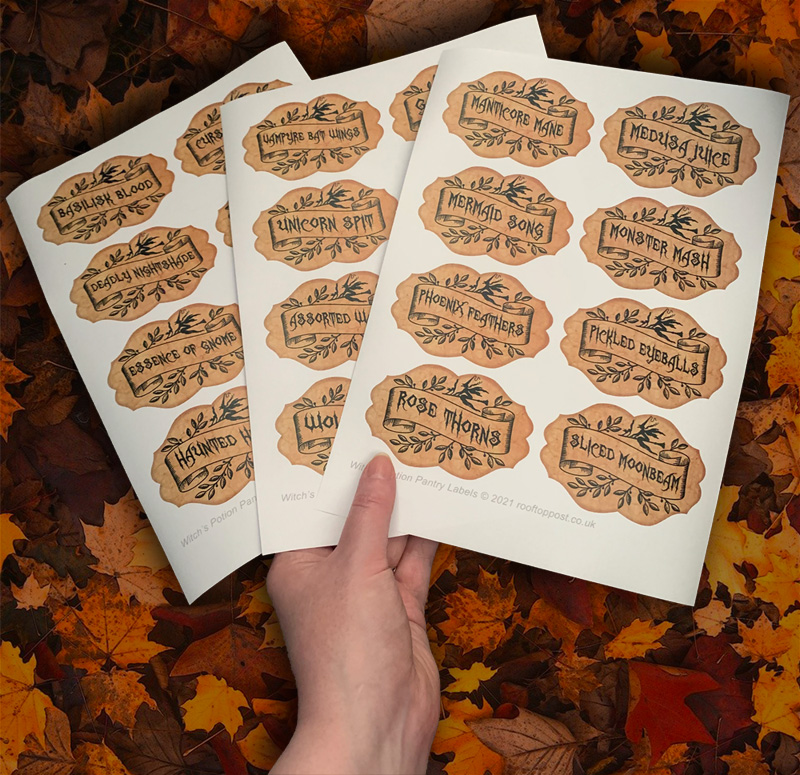 BASILISK BLOOD
DEADLY NIGHTSHADE
ESSENCE OF GNOME
HAUNTED
Witch's Potion
VAMPYRE BAT WINGS
UNICORN SPIT
ASSORTED
Witch's
MANTICORE MANE
MEDUSA JUICE
MERMAID SONG
MONSTER MASH
PHOENIX FEATHERS
PICKLED EYEBALLS
ROSE THORNS
SLICED MOONBEAM
Potion Pantry Labels © 2021 rooftoppost.co.uk